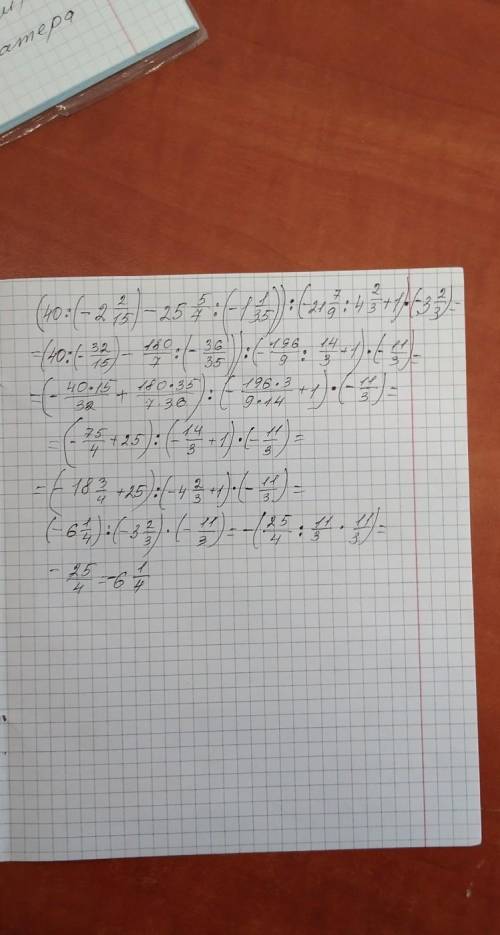 атера
(40:(-2 2/15)-25 5/7:(-1 1/35)):(-21 7/9:4 2/3+1)·(-3 2/3)=
=(40:(-32/15)-180/7:(-36/35)):(-196/9:14/3+1)·(-11/3)=
=(-40·15/32+180·35/7·36):(-196·3/9·14+1)·(-11/3)=
=(-75/4+25):(-14/3+1)·(-11/3)=
=(-18 3/4+25):(-4 2/3+1)·(-11/3)=
(-6 1/4):(-3 2/3)·(-11/3)=-(25/4:11/3·11/3)=
-25/4=-6 1/4